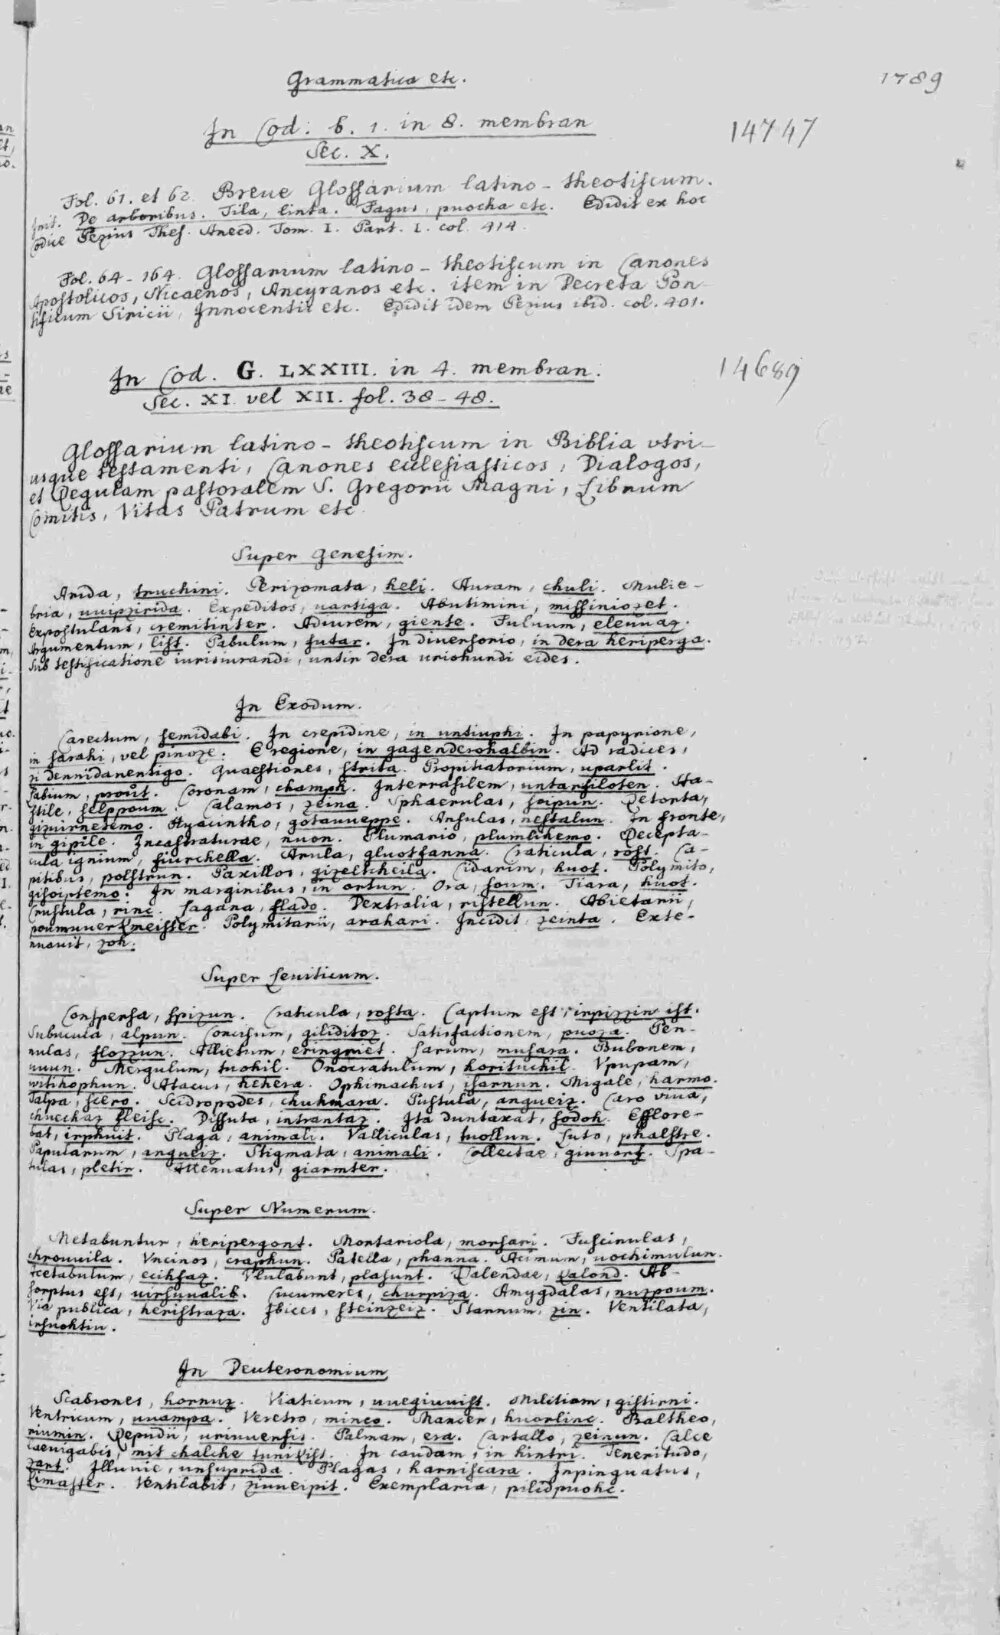 Grammatica etc.
1789
In Cod. b. 1. in 8. membran
14747
Sec. X.
Fol. 61. et 62. Breue Glossarium latino-theotiscum.
Init. De arboribus. Tila, linta. Fagus, puocha etc. Edidit ex hoc
Codice Pezius Thes. Anecd. Tom. I. Part. I. col. 414.
Fol. 64-164. Glossarium latino-theotiscum in Canones
Apostolicos, Nicaenos, Ancyranos etc. item in Decreta Pon-
tificum Siricii, Innocentii etc. Edidit idem Pezius ibid. col. 401.
In Cod. G. LXXIII. in 4. membran.
14689
Sec. XI vel XII. fol. 38-48.
Glossarium latino-theotiscum in Biblia vtri-
usque testamenti, Canones ecclesiasticos, Dialogos,
et Regulam pastoralem S. Gregorii Magni, Librum
Comitis, Vitas Patrum etc.
Super Genesim.
Arida, truchini. Perizomata, keli. Auram, chuli. Mulie-
bria, uuipzirida. Expeditos, uartiga. Abutimini, missiniozet.
Expostulans, cremitinter. Adiurem, giente. Fuluum,
Argumentum, list. Pabulum, futar. In diuersorio, in dera heriperga.
Sub testificatione iurisiurandi, untir dera eides.
In Exodum.
Carectum, semidahi. In crepidine, in In papyrione,
in sarahi, vel pinoze. E regione, in Ad radices,
zi dennidanentigo. Quaestiones, strita. Propitiatorium, uparlit.
Labium, prout. Coronam, champh. Interrasilem, Ha-
stile, Calamos, zeina. Sphaerulas, Retorta,
gizuirnetemo. Hyacintho, gotauueppe. Ansulas, nestalun. In fronte,
in gipile. Incastraturae, nuon. Plumario, plumlihemo. Decepta-
cula ignium, fiurchella. Arula, gluotfanna. Craticula, rost. Ca-
pitibus, polstrun. Paxillos, Cidarim, huot. Polymito,
In marginibus, in ortun. Ora, soum. Tiara, huot.
Crustula, rinc. Lagana, flado. Dextralia, ristellun. Abietarii,
poumuuerkmeister. Polymitarii, arahari. Incidit, zeinta. Exte-
nuauit, zoh.
Super Leuiticum.
Conspersa, spizun. Craticula, rosta. Captum est, ist.
Subucula, alpun. Concisum, giliditoz. Satisfactionem, puoza. Pen-
nulas, flozzun. Allisum, Larum, musara. Bubonem,
uuun. Mergulum, tuohil. Onocratulum, Vpupam,
witihophun. Atacus, hehera. Ophimachus, Migale, harmo.
Talpa, scero. Scidropodes, chuhmara. Pustula, angueiz. Caro viua,
chuechaz fleisc. Dissuta, intrantaz. Ita duntaxat, sodoh. Efflore-
bat, Plaga, animali. Valliculas, tuollun. Luto, phalstre.
Papularum, angueiz. Stigmata, animali. Collectae, Spa-
tulas, pletir. Attenuatus, giarmter.
Super Numerum.
Metabuntur, heripergont. Mortariola, morsari. Fuscinulas,
chrouuila. Vncinos, craphun. Patella, phanna. Acinum,
Acetabulum, ezihfaz. Vlulabunt, plasunt. Kalendae, kalond. Ab-
sorptus est, Cucumeres, churpiza. Amygdalas, nuzpoum.
Via publica, heristraza. Ibices, steinzeiz. Stannum, zin. Ventilata,
In Deuteronomium
Scabrones, hornuz. Viaticum, uuegiuuist. Militiam, gistirni.
Ventricum, uuampa. Veretro, Manzer, huorlinc. Baltheo,
riumin. Repudii, Palmam, era. Cartallo, zeinun. Calce
laeuigabis, mit chalche In caudam, in hintri. Teneritudo,
zart. Illuuie, unsuprida. Plagas, harniscara. Inpinguatus,
Ventilabit, Exemplaria, pilidpuohc.